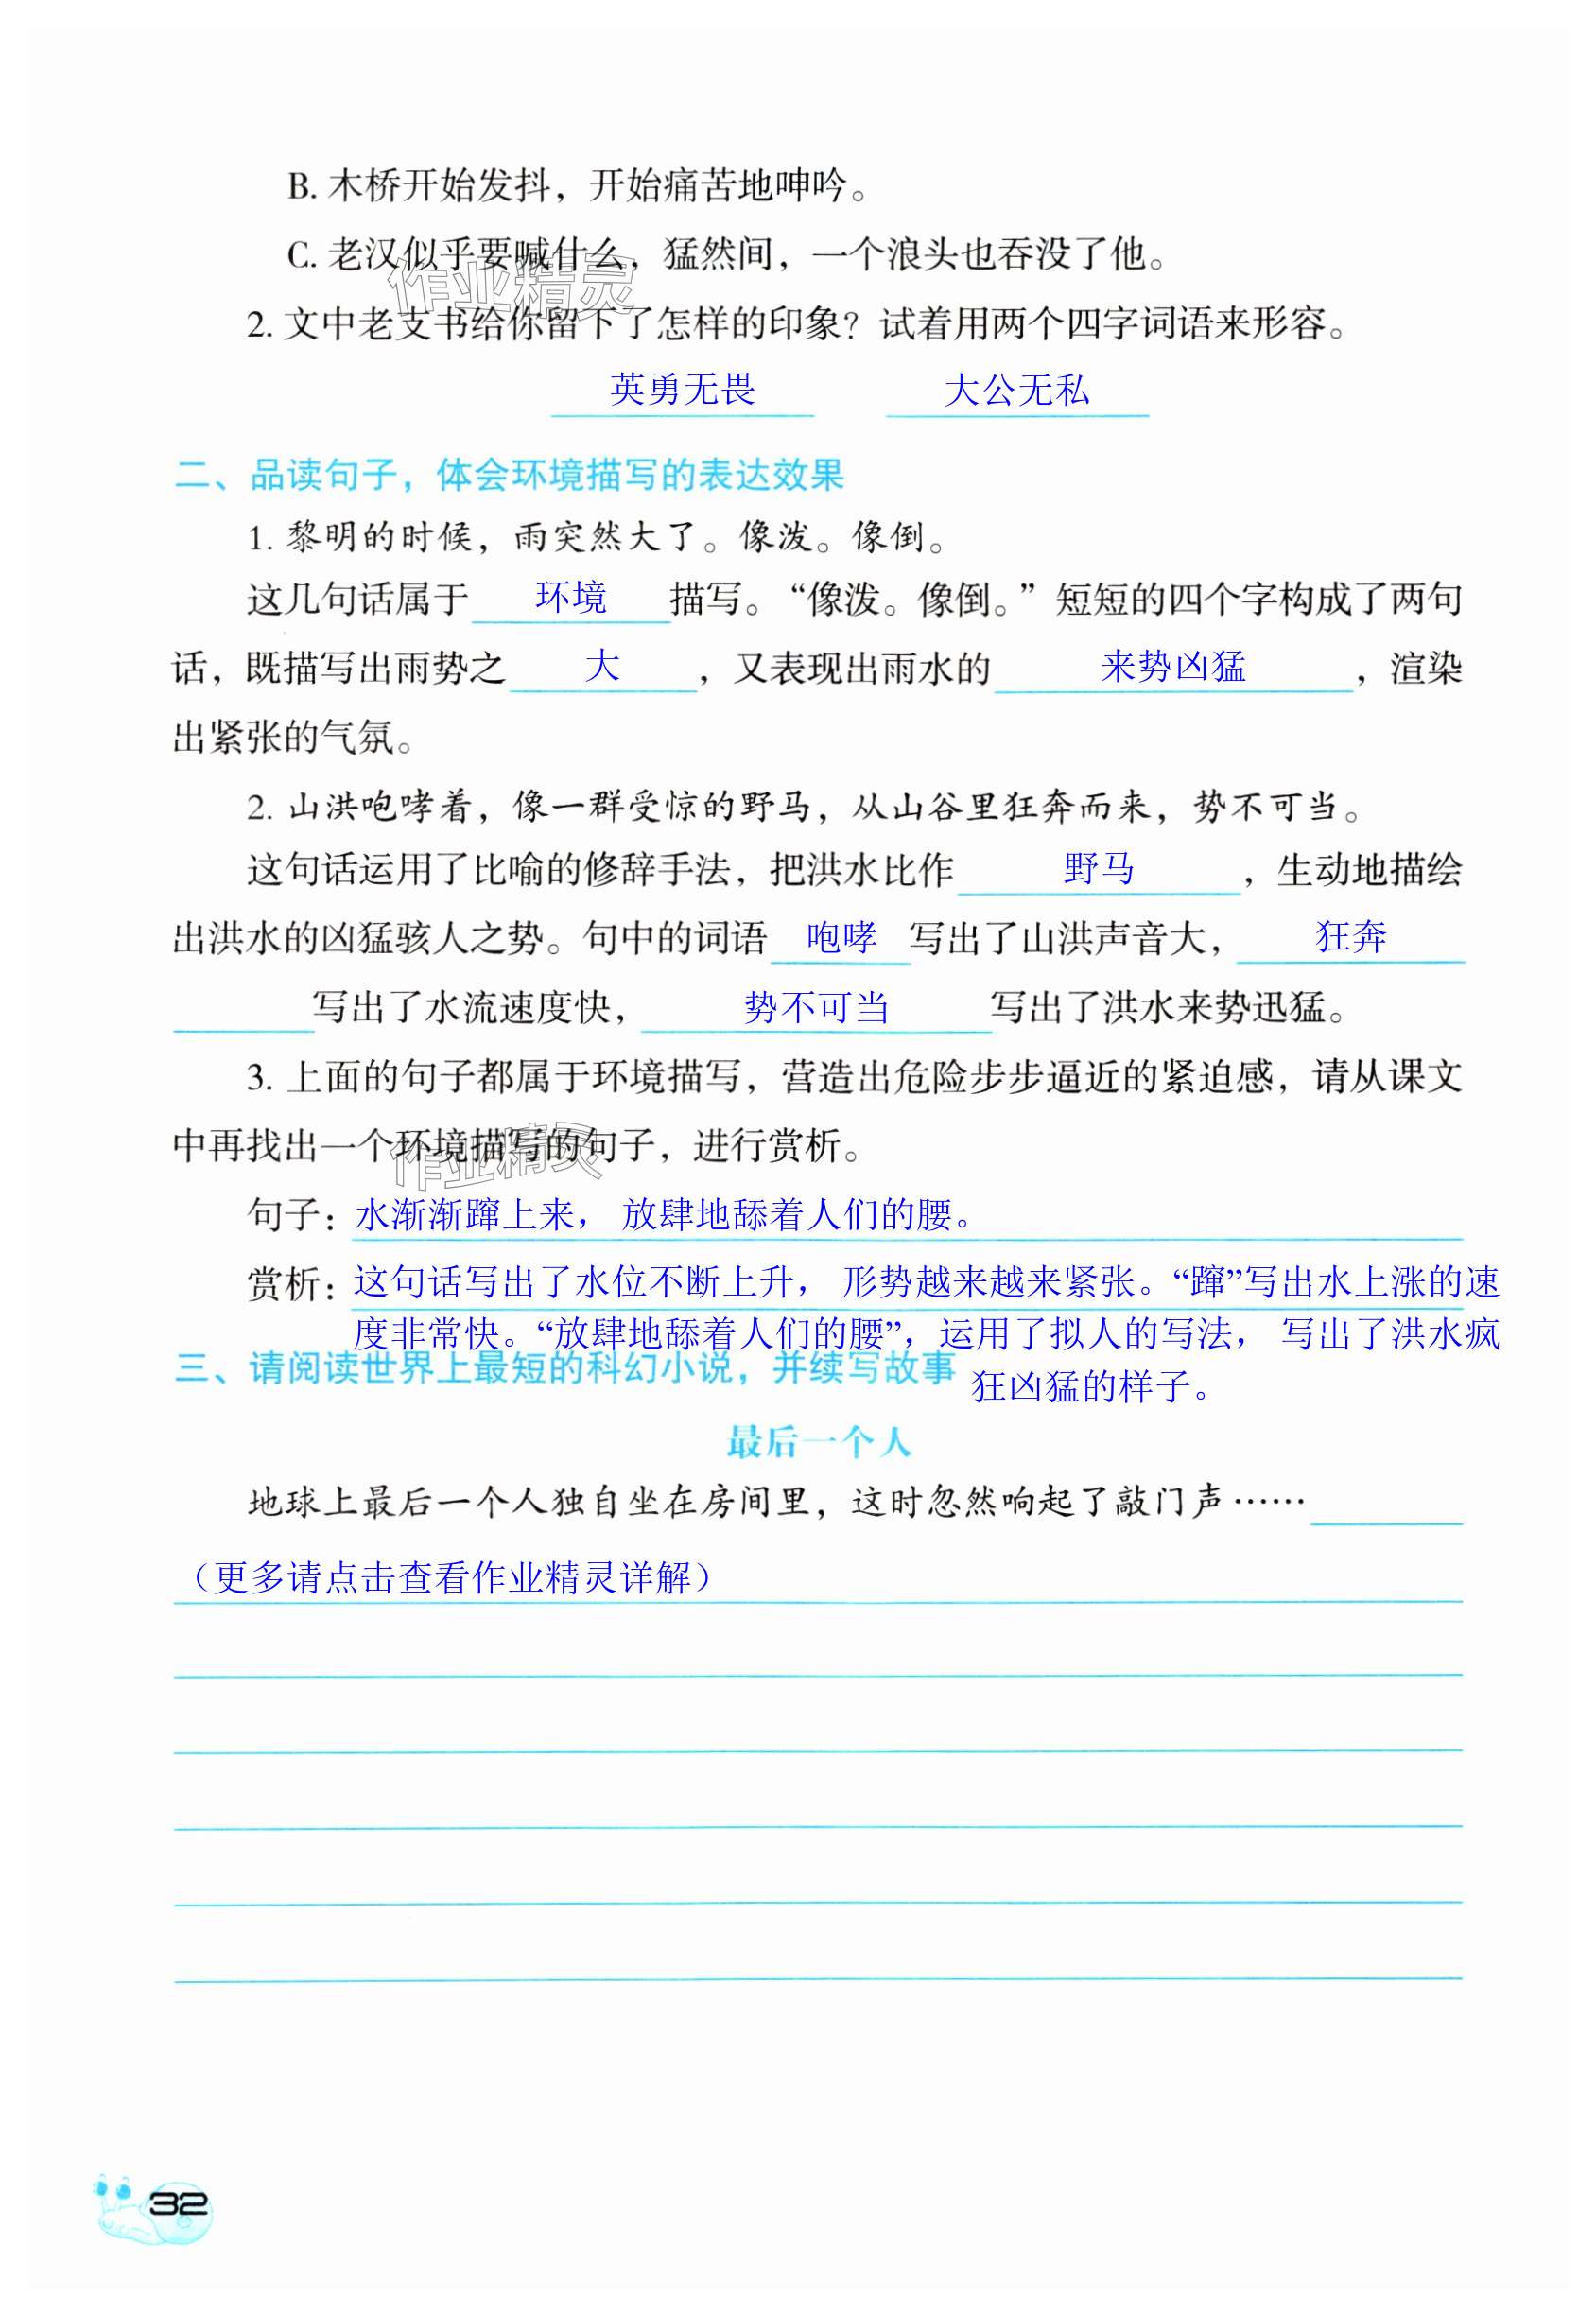 B. 木桥开始发抖，开始痛苦地呻吟。
C. 老汉似乎要喊什么，猛然间，一个浪头也吞没了他。
作业精灵
2. 文中老支书给你留下了怎样的印象？试着用两个四字词语来形容。
英勇无畏 大公无私
二、品读句子，体会环境描写的表达效果
1. 黎明的时候，雨突然大了。像泼。像倒。
这几句话属于 环境 描写。“像泼。像倒。”短短的四个字构成了两句
话，既描写出雨势之 大 ，又表现出雨水的 来势凶猛 ，渲染
出紧张的气氛。
2. 山洪咆哮着，像一群受惊的野马，从山谷里狂奔而来，势不可当。
这句话运用了比喻的修辞手法，把洪水比作 野马 ，生动地描绘
出洪水的凶猛骇人之势。句中的词语 咆哮 写出了山洪声音大， 狂奔
写出了水流速度快， 势不可当 写出了洪水来势迅猛。
3. 上面的句子都属于环境描写，营造出危险步步逼近的紧迫感，请从课文
中再找出一个环境描写的句子，进行赏析。
作业精灵
句子：水渐渐蹿上来， 放肆地舔着人们的腰。
赏析：这句话写出了水位不断上升， 形势越来越来紧张。“蹿”写出水上涨的速
度非常快。“放肆地舔着人们的腰”，运用了拟人的写法， 写出了洪水疯
狂凶猛的样子。
三、请阅读世界上最短的科幻小说，并续写故事
最后一个人
地球上最后一个人独自坐在房间里，这时忽然响起了敲门声……
（更多请点击查看作业精灵详解）
32